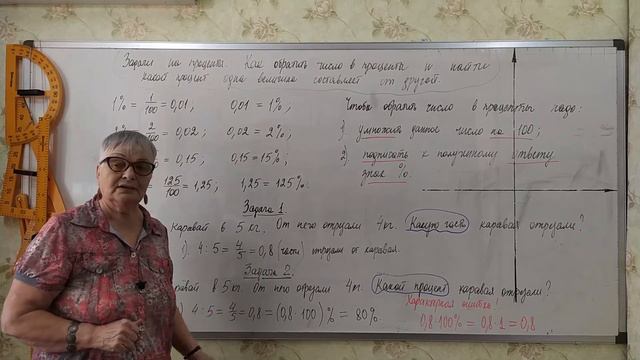 Задачи на проценты. Как обратить число в проценты и найти
какой процент одна величина составляет от другой.
1% = 1/100 = 0,01; 0,01 = 1%; Чтобы обратить число в проценты надо:
2/100 = 0,02; 0,02 = 2%; 1) умножить данное число на 100;
= 0,15; 0,15 = 15%; 2) подписать к полученному ответу
знак %.
125/100 = 1,25; 1,25 = 125%.
Задача 1.
каравай в 5 кг. От него отрезали 4 кг. Какую часть каравая отрезали?
1). 4 : 5 = 4/5 = 0,8 (части) отрезали от каравая.
Задача 2.
каравай в 5 кг. От него отрезали 4 кг. Какой процент каравая отрезали?
Характерная ошибка!
) 4 : 5 = 4/5 = 0,8 = (0,8 · 100)% = 80%.
0,8 · 100% = 0,8 · 1 = 0,8